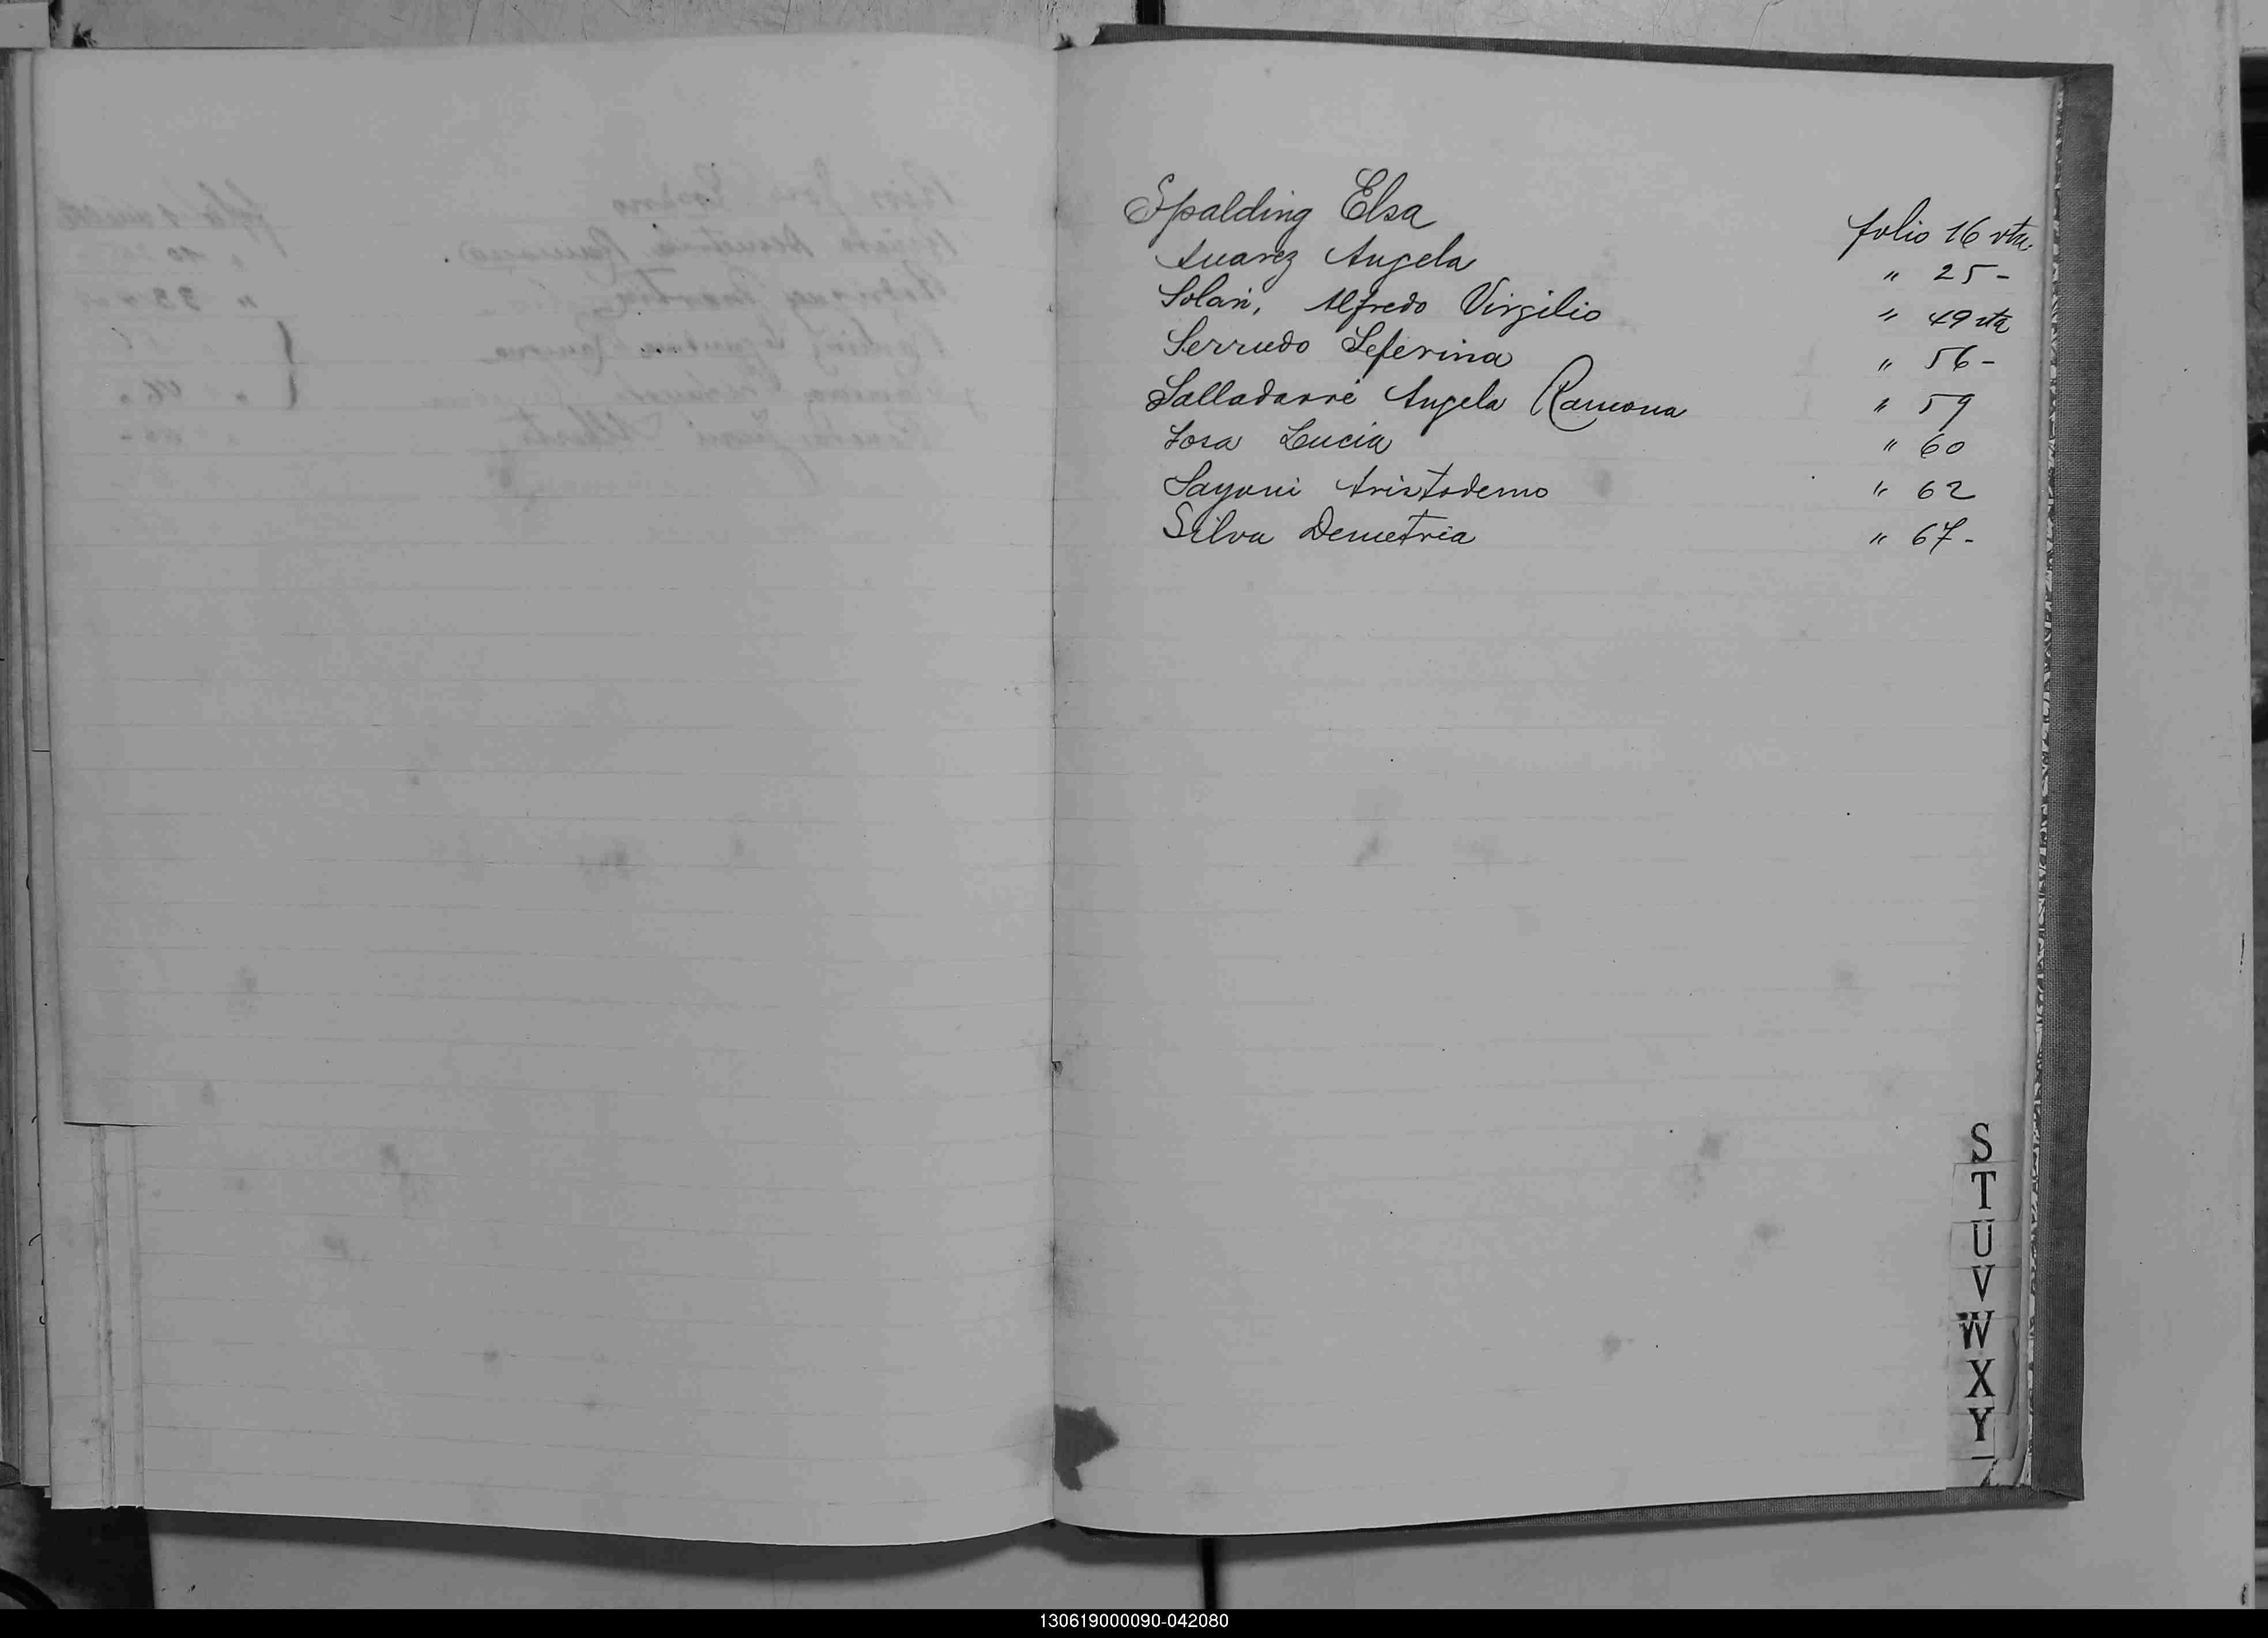 Spalding Elsa folio 16 vta.
Suarez Angela " 25 -
Solari, Alfredo Virgilio " 49 vta
Serrudo Seferina " 56 -
Salladarré Angela Ramona " 59
Sosa Lucía " 60
Sayoni Aristodemo " 62
Silva Demetria " 67 -
S
T
U
V
W
X
Y
130619000090-042080